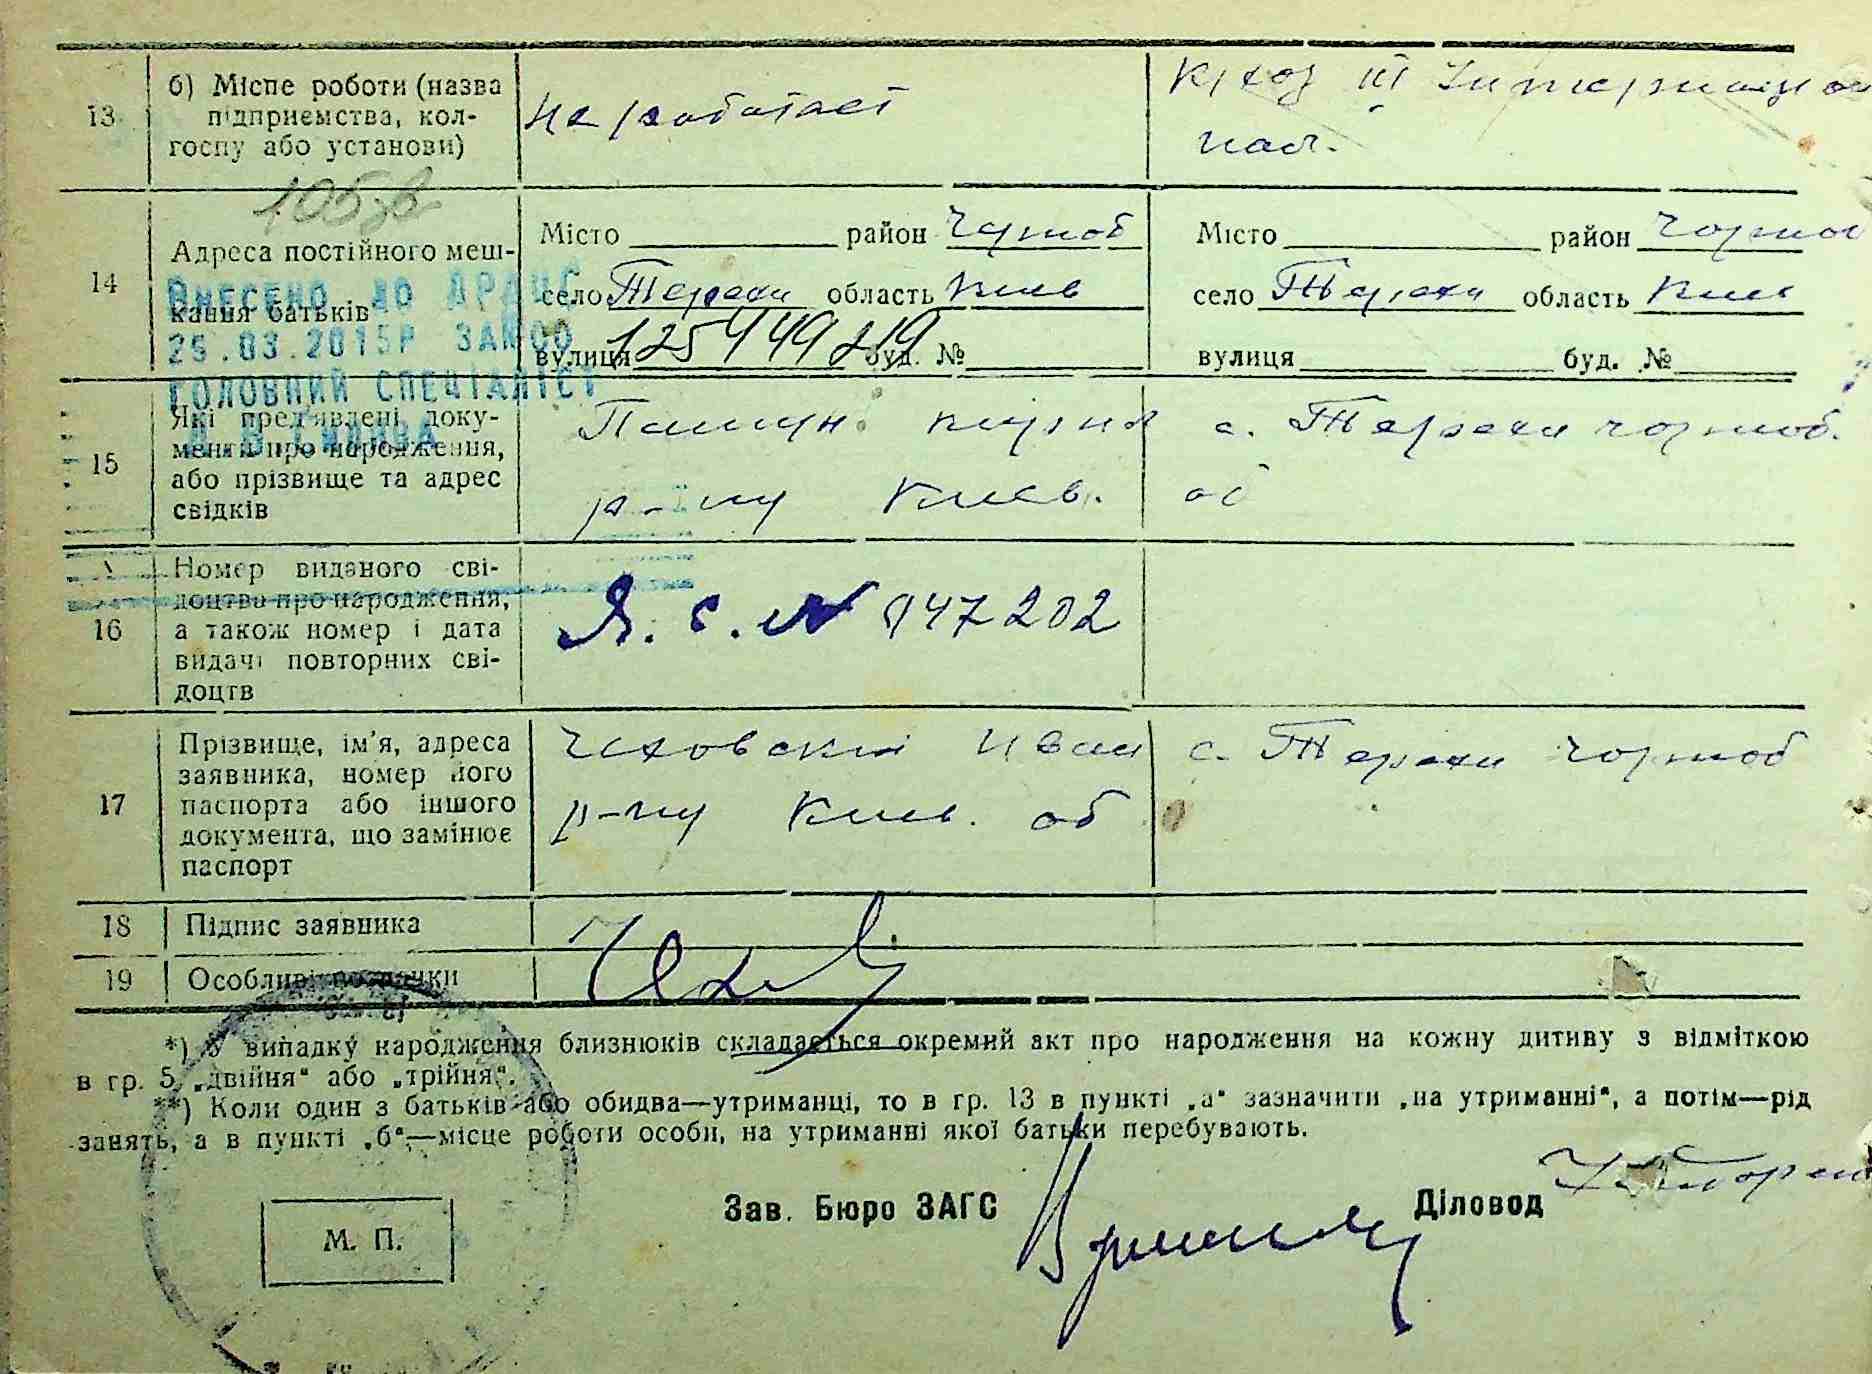 13
б) Місце роботи (назва
підприємства, кол-
госпу або установи)
не работает
К/хоз III Интернацион
нал.
14
Адреса постійного меш-
кання батьків
Місто район Чорноб
село Терехи область Киев
вулиця буд. №
125449219
Місто район Чорноб
село Терехи область Киев
вулиця буд. №
ВНЕСЕНО ДО ДРАЦС
25.03.2015Р
ГОЛОВНИЙ СПЕЦІАЛІСТ
15
Які пред'явлені доку-
менти про народження,
або прізвище та адрес
свідків
с. Терехи Чорноб.
р-ну Киев. об
16
Номер виданого сві-
доцтва про народження,
а також номер і дата
видачі повторних сві-
доцтв
Я. С. № 947202
17
Прізвище, ім'я, адреса
заявника, номер його
паспорта або іншого
документа, що замінює
паспорт
Чеховский Иван с. Терехи Чорноб
р-ну Киев. об
18 Підпис заявника
19 Особливі позначки
*) У випадку народження близнюків складається окремий акт про народження на кожну дитину з відміткою
в гр. 5 „двійня“ або „трійня“.
**) Коли один з батьків або обидва—утриманці, то в гр. 13 в пункті „а“ зазначити „на утриманні“, а потім—рід
занять, а в пункті „б“—місце роботи особи, на утриманні якої батьки перебувають.
Зав. Бюро ЗАГС
Діловод
М. П.